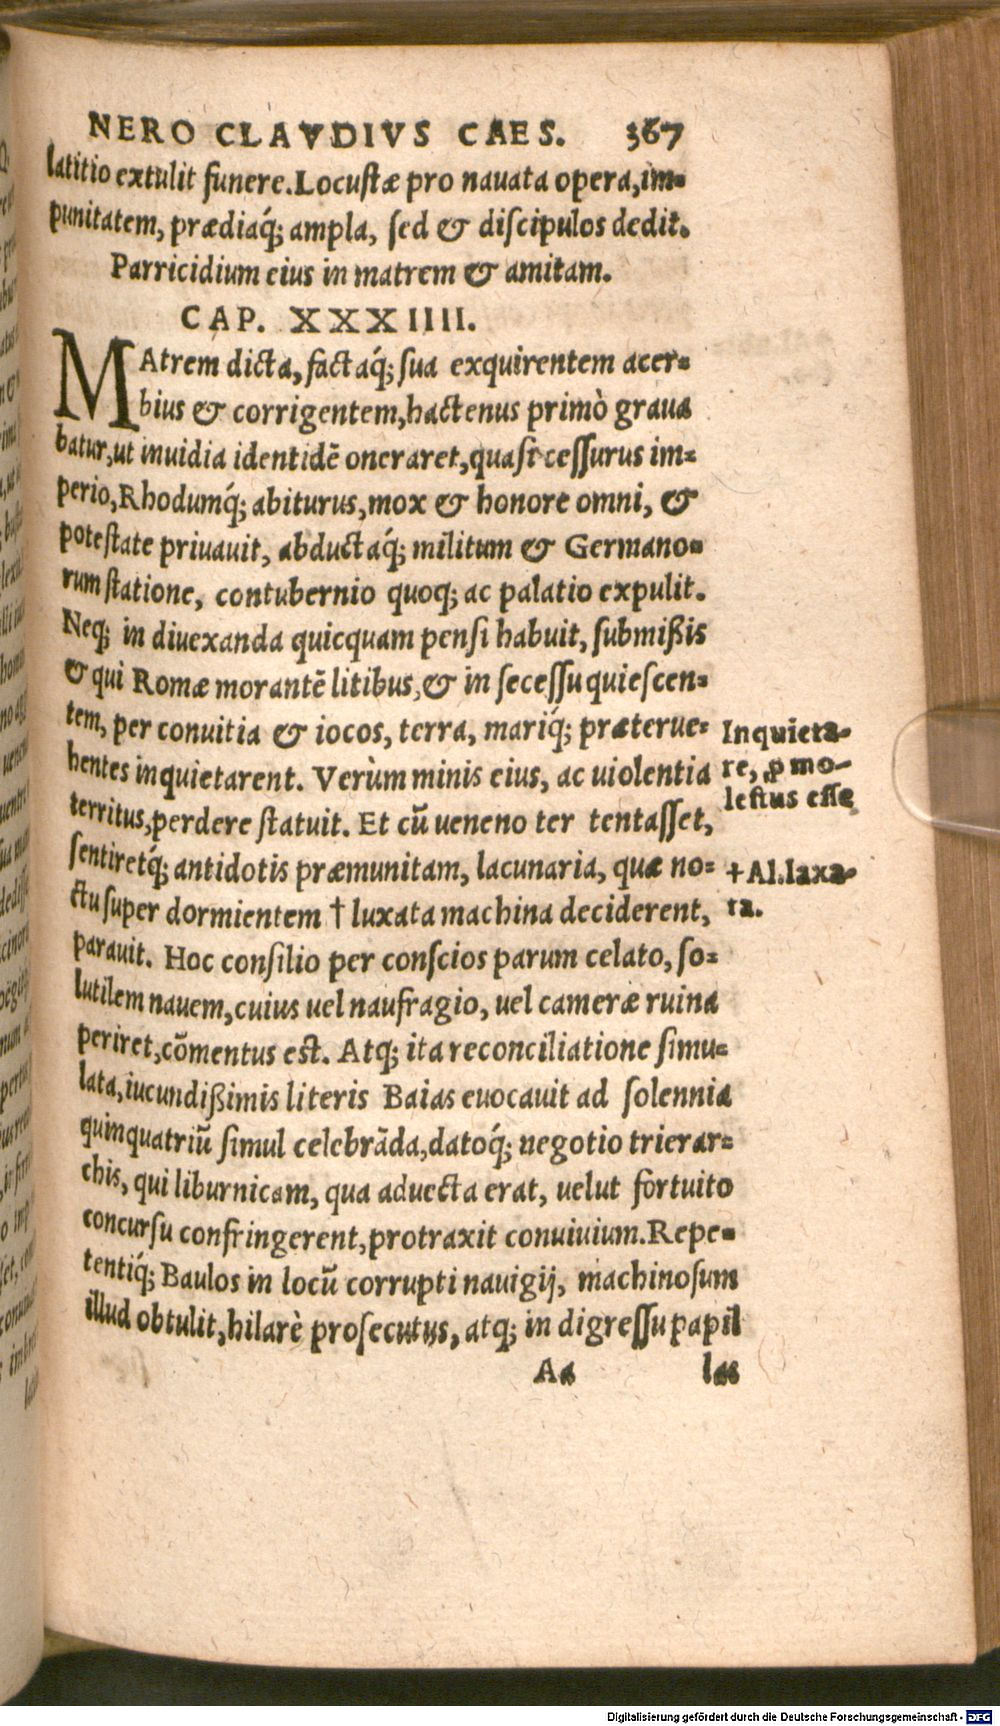 NERO CLAVDIVS CAES. 367
latitio extulit funere. Locustæ pro nauata opera, im-
punitatem, prædiaq́; ampla, sed & discipulos dedit.
Parricidium eius in matrem & amitam.
CAP. XXXIIII.
MAtrem dicta, factaq́; sua exquirentem acer-
bius & corrigentem, hactenus primò graua
batur, ut inuidia identidẽ oneraret, quasi cessurus im-
perio, Rhodumq́; abiturus, mox & honore omni, &
potestate priuauit, abductaq́; militum & Germano-
rum statione, contubernio quoq; ac palatio expulit.
Neq; in diuexanda quicquam pensi habuit, submißis
& qui Romæ morantẽ litibus, & in secessu quiescen-
tem, per conuitia & iocos, terra, mariq́; præterue-
hentes inquietarent. Verùm minis eius, ac uiolentia
territus, perdere statuit. Et cũ ueneno ter tentasset,
sentiretq́; antidotis præmunitam, lacunaria, quæ no-
ctu super dormientem † luxata machina deciderent,
parauit. Hoc consilio per conscios parum celato, so-
lutilem nauem, cuius uel naufragio, uel cameræ ruina
periret, cõmentus est. Atq; ita reconciliatione simu-
lata, iucundißimis literis Baias euocauit ad solennia
quinquatriũ simul celebrãda, datoq́; negotio trierar-
chis, qui liburnicam, qua aduecta erat, uelut fortuito
concursu confringerent, protraxit conuiuium. Repe-
tentiq́; Baulos in locũ corrupti nauigij, machinosum
illud obtulit, hilarè prosecutus, atq; in digressu papil
Aa las
Inquieta-
re, ꝓ mo-
lestus esse
+ Al. laxa-
ta.
Digitalisierung gefördert durch die Deutsche Forschungsgemeinschaft - DFG